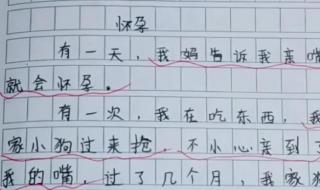 怀孕
有一天，我妈告诉我亲嘴
就会怀孕。
有一次，我在吃东西，我
家小狗过来抢，不小心亲到了
我的嘴，过了几个月，我家狗